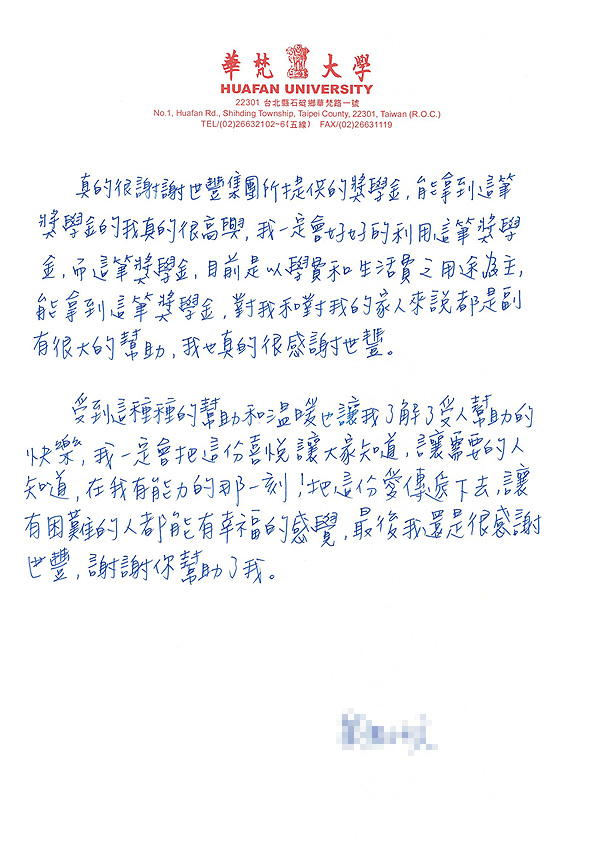 華梵大學
HUAFAN UNIVERSITY
22301 台北縣石碇鄉華梵路一號
No.1, Huafan Rd., Shihding Township, Taipei County, 22301, Taiwan (R.O.C.)
TEL/(02)26632102~6(五線) FAX/(02)26631119
真的很謝謝世豐集團所提供的獎學金,能拿到這筆
獎學金的我真的很高興,我一定會好好的利用這筆獎學
金,而這筆獎學金,目前是以學費和生活費之用途為主,
能拿到這筆獎學金,對我和對我的家人來說都是副
有很大的幫助,我也真的很感謝世豐。
受到這種種的幫助和溫暖也讓我了解了受人幫助的
快樂,我一定會把這份喜悅讓大家知道,讓需要的人
知道,在我有能力的那一刻!把這份愛傳遞下去,讓
有困難的人都能有幸福的感覺,最後我還是很感謝
世豐,謝謝你幫助了我。